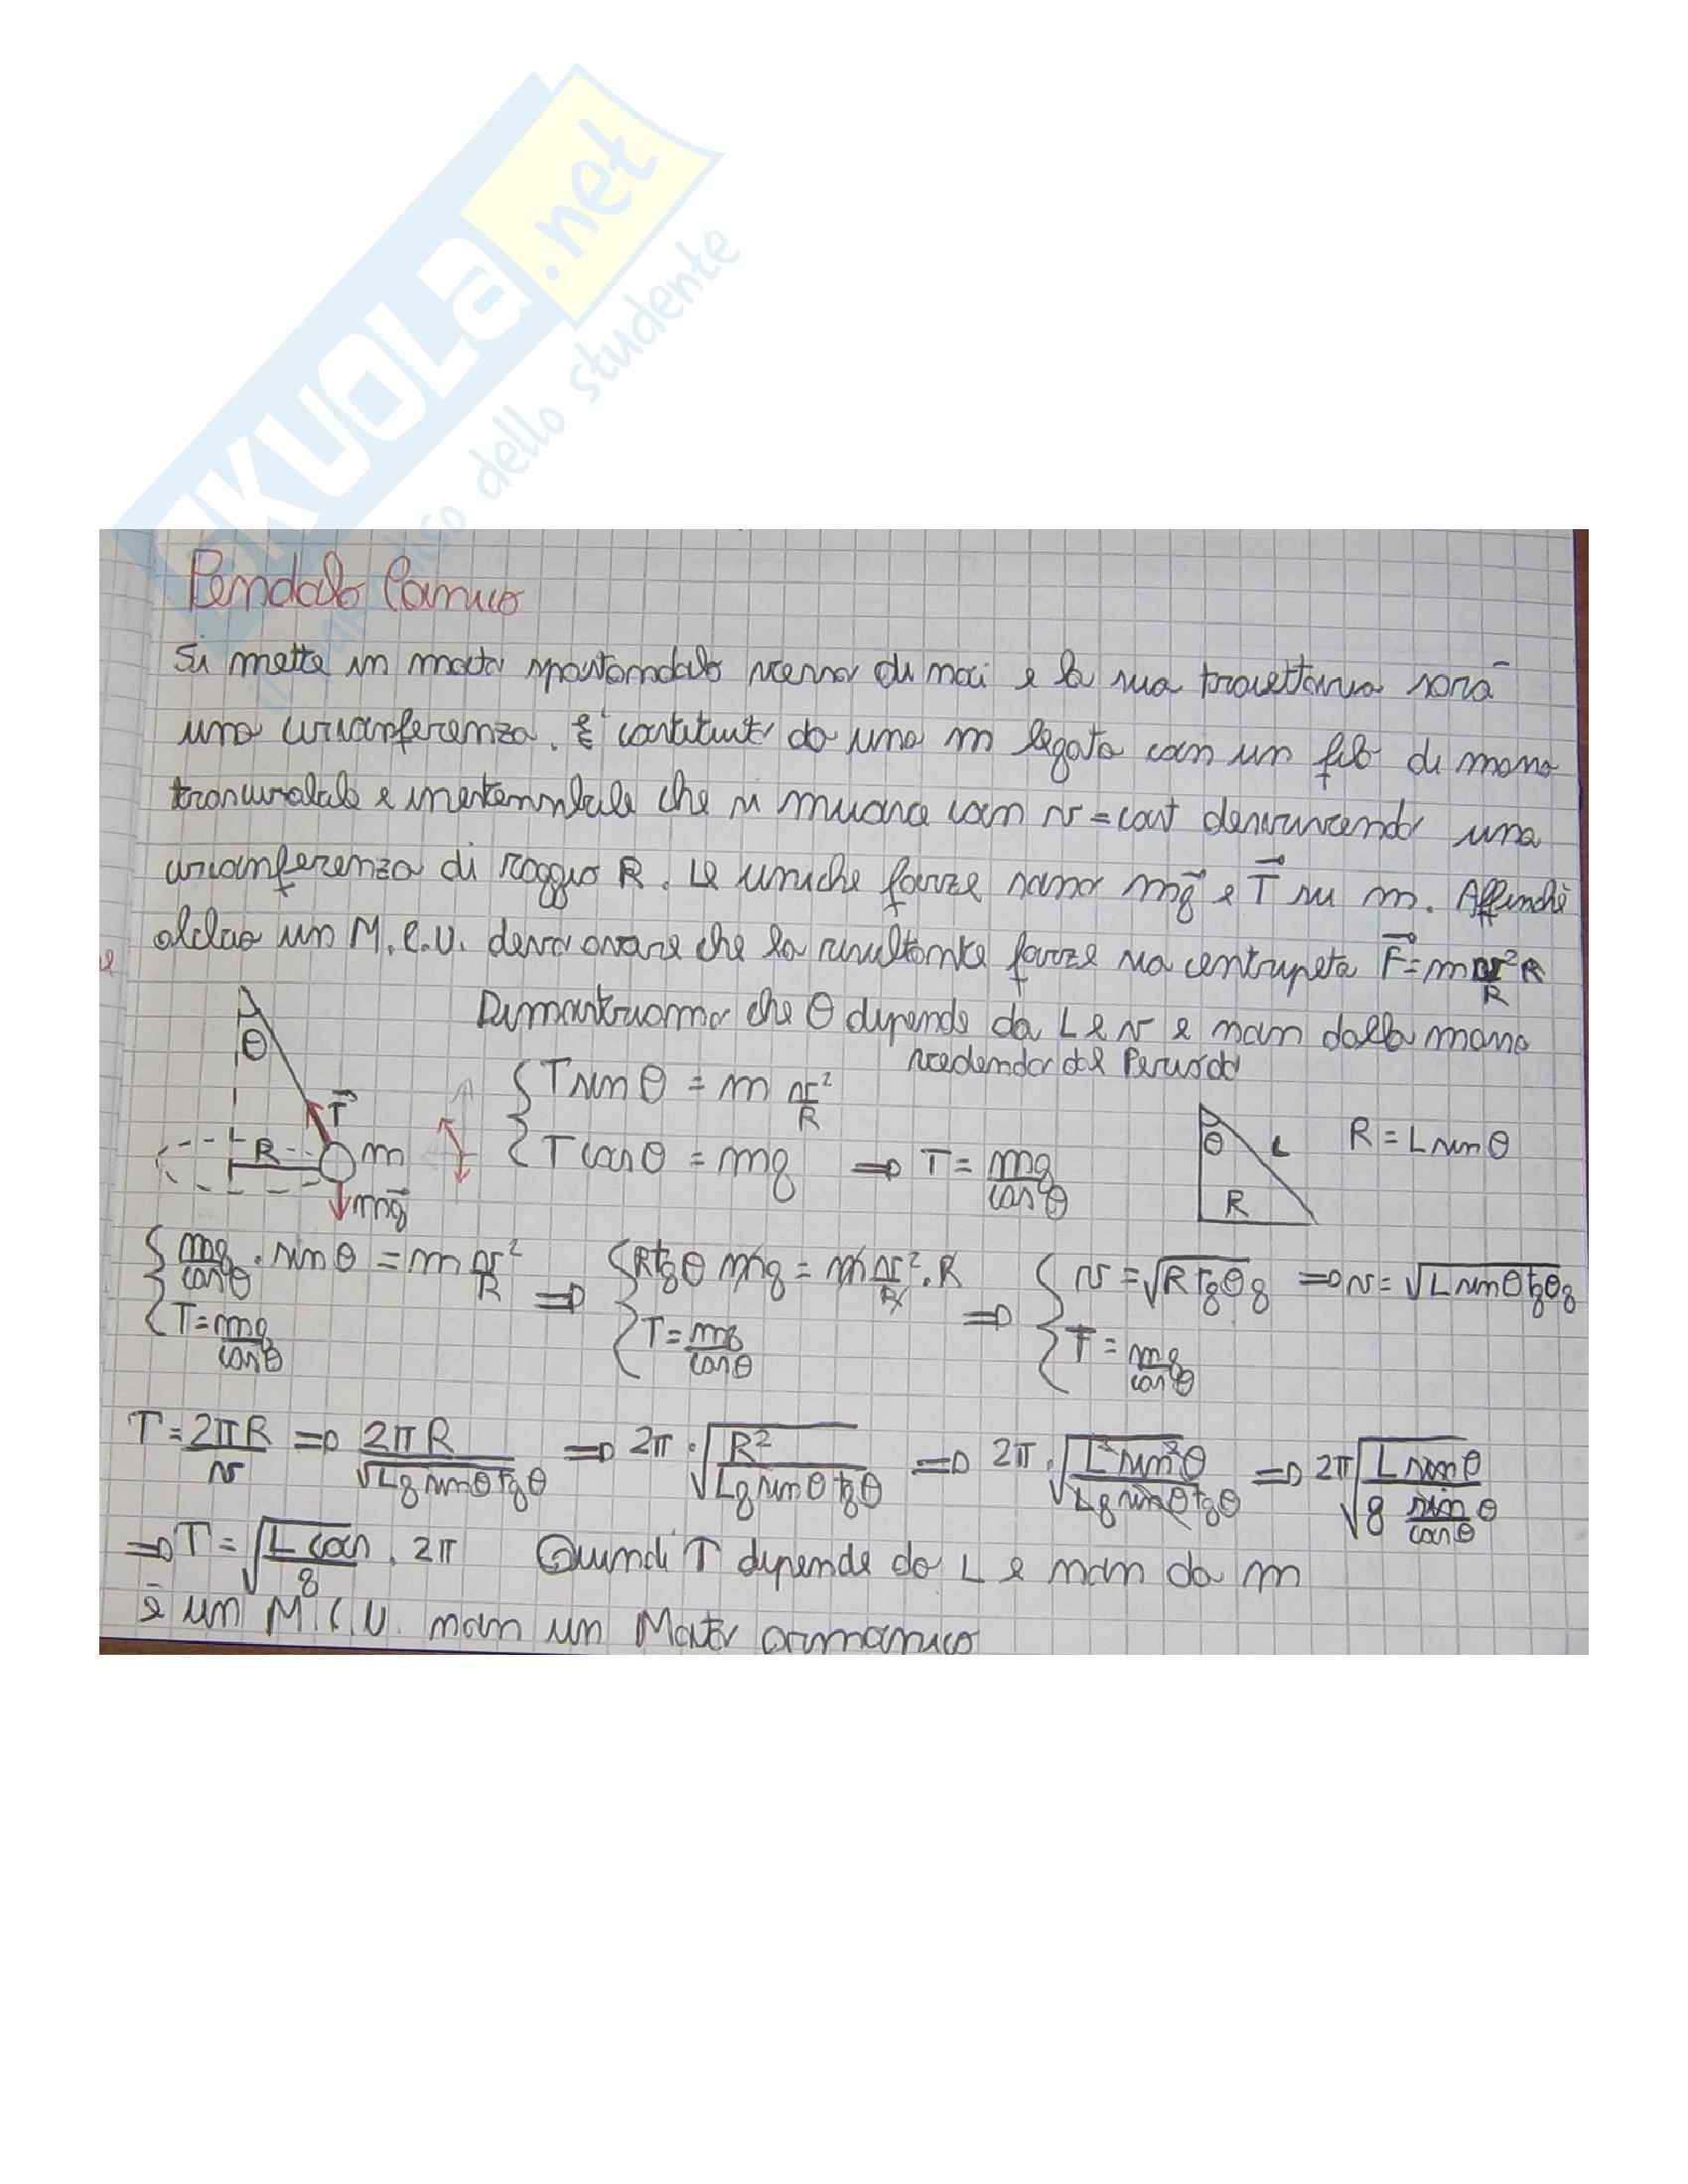 SKUOLa.net
dello studente
Pendolo Conico
Si mette in moto spostandolo verso di noi e la sua traiettoria sarà
una circonferenza. È costituito da una m legata con un filo di massa
trascurabile e inestensibile che si muove con v = cost descrivendo una
circonferenza di raggio R. Le uniche forze sono m\vec{g} e \vec{T} su m. Affinchè
abbia un M.C.U. devo avere che la risultante forze sia centripeta \vec{F} = m v²/R
Dimostriamo che θ dipende da L e v e non dalla massa
vedendo dal Periodo
θ
\vec{T}
R
m
m\vec{g}
{ T sin θ = m v²/R
{ T cos θ = mg => T = mg/cos θ
θ L R
R = L sin θ
{ mg/cos θ · sin θ = m v²/R => { R tg θ mg = m v²/R · R => { v = √(R tg θ g) => v = √(L sin θ tg θ g)
{ T = mg/cos θ { T = mg/cos θ { T = mg/cos θ
T = 2πR/v => 2πR/√(Lg sin θ tg θ) => 2π · √(R²/(Lg sin θ tg θ)) => 2π · √(L² sin² θ/(Lg sin θ tg θ)) => 2π √(L sin θ/(g sin θ/cos θ))
=> T = √(L cos/g) · 2π Quindi T dipende da L e non da m
è un M.C.U. non un Moto armonico